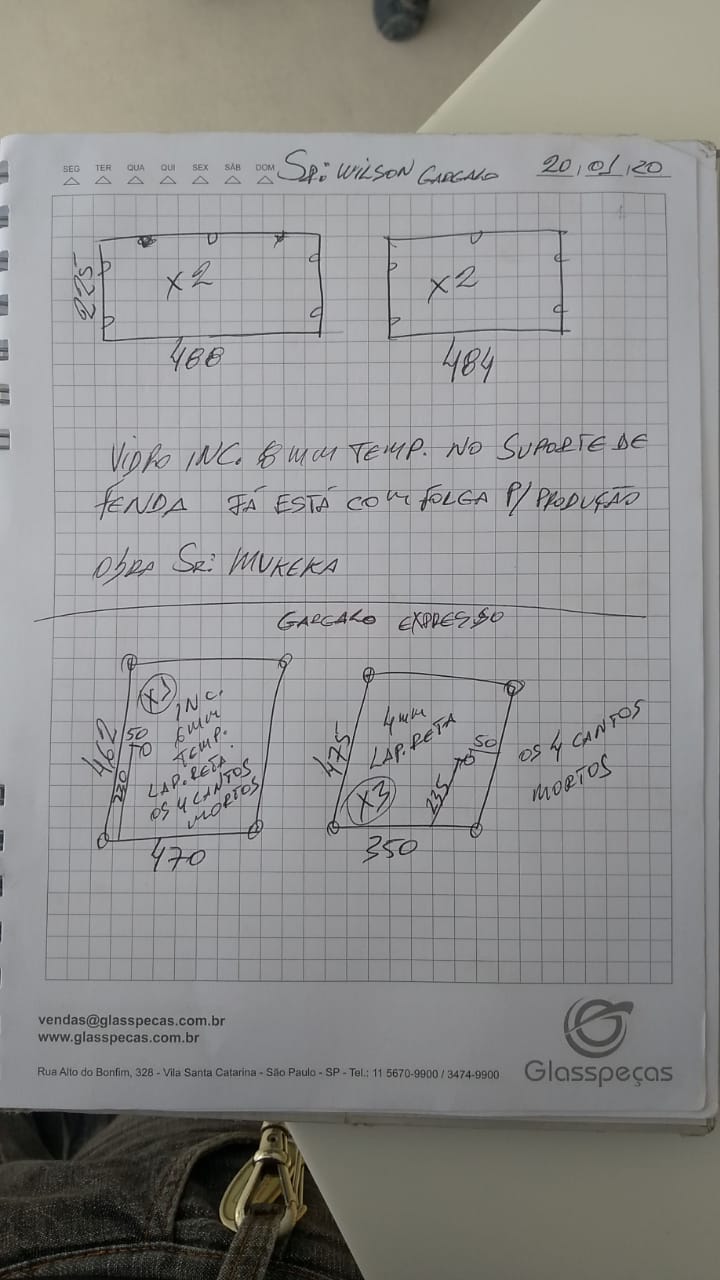 SEG TER QUA QUI SEX SÁB DOM
SR: WILSON GARGALO 20,01,20
X2
225
488
X2
484
VIDRO INC. 8 mm TEMP. NO SUPORTE DE
FENDA JÁ ESTÁ COM FOLGA P/ PRODUÇÃO
OBRA SR: MUKEKA
GARGALO EXPRESSO
X1
INC.
6mm
TEMP.
LAP. RETA
OS 4 CANTOS
MORTOS
462
50
70
230
470
4mm
LAP. RETA
X3
475
50
70
235
350
OS 4 CANTOS
MORTOS
vendas@glasspecas.com.br
www.glasspecas.com.br
Rua Alto do Bonfim, 328 - Vila Santa Catarina - São Paulo - SP - Tel.: 11 5670-9900 / 3474-9900
Glasspeças